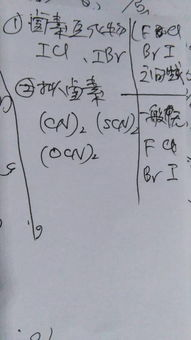 ① 卤素互化物
ICl、IBr
②拟卤素
(CN)₂ (SCN)₂
(OCN)₂
F Cl
Br I
之间
一般
F Cl
Br I